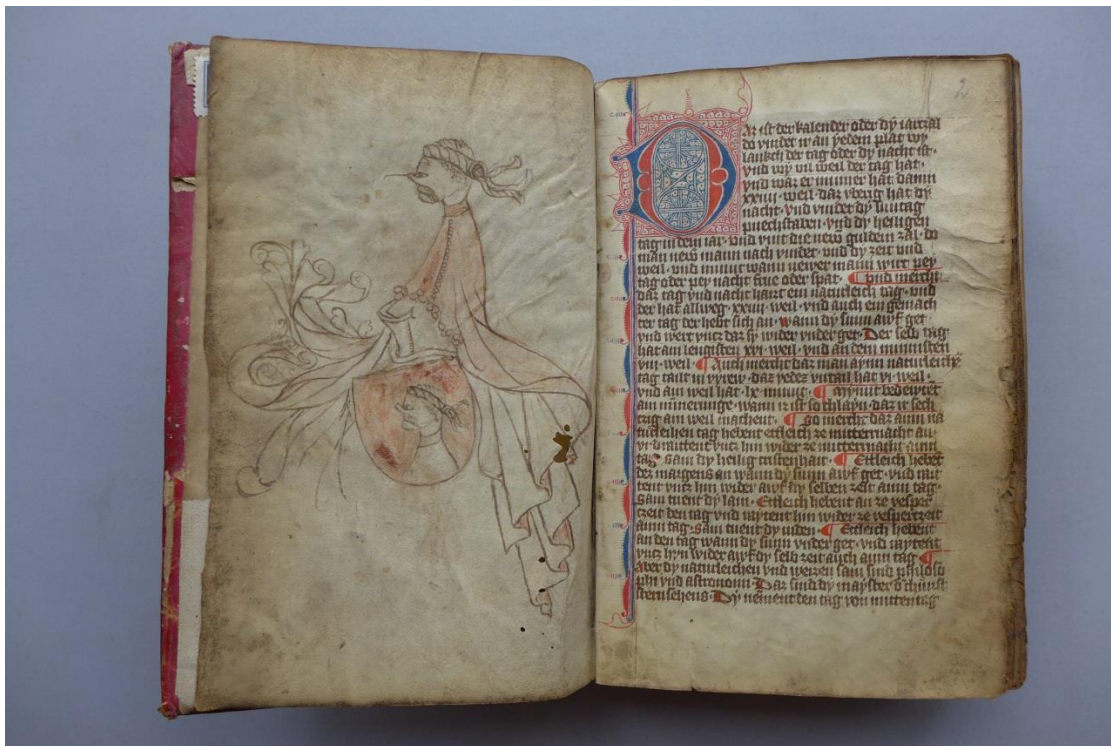 2
Daz ist der kalender oder dÿ iarczal
do vindet ir an ÿedem plat wÿ
lankch der tag oder dÿ nacht ist
vnd wÿ vil weil der tag hat
vnd waz er minner hat dann
xxiiii weil daz vberig hat dÿ
nacht vnd vindet dÿ suntag
puechstaben vnd dÿ heiligen
tag in dem iar vnd vint die new guldein zal do
man new mann nach vindet vnd dÿ zeit vnd
weil vnd minut wann newer mann wirt pey
tag oder pey nacht frue oder spat ¶ Vnd mercht
daz tag vnd nacht haizt ein naturleich tag vnd
der hat allweg xxiiii weil vnd auch ein gemach
ter tag der hebt sich an wann dÿ sunn awf get
vnd wert vncz daz sÿ wider vnder get Der selb tag
hat am lengisten xvi weil vnd an dem minnisten
viii weil ¶ Auch mercht daz man aÿnn naturleichen
tag tailt in vÿrew daz ÿedez virtail hat vi weil
vnd ain weil hat lx minut ¶ aÿ minut bedewtet
ain minnerunge wann ir ist so chlayn daz ir sech
czig ain weil machent ¶ So mercht daz ainn na
turleihen tag hebent ettleich ze mitternacht an
vnd raittent vncz hin wider ze mitternacht ainn
tag sam dÿ heilig cristenhait ¶ Ettleich hebent
dez margens an wann dÿ sunn awf get vnd rait
tent vncz hin wider awf dÿ selben zeit ainn tag
sam tuent dÿ lain Ettleich hebent an ze vesper
zeit den tag vnd raÿtent hin wider ze vesperzeit
ainn tag sam tuent dÿ iuden ¶ Ettleich hebent
an den tag wann dÿ sunn vnder get vnd raÿtent
vncz hyn wider awf dÿ selb zeit auch ainn tag ¶
Aver dÿ naturleichen vnd weizen sam sind philoso
phi vnd astronomi Daz sind dÿ maÿster d chunst
sternsehens Dÿ nement den tag von mittentag